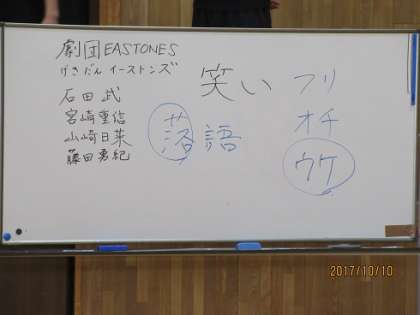 劇団EASTONES
げきだん イーストンズ
石田 武
宮崎重信
山崎日菜
藤田勇紀
笑い
落語
フリ
オチ
ウケ
2017/10/10